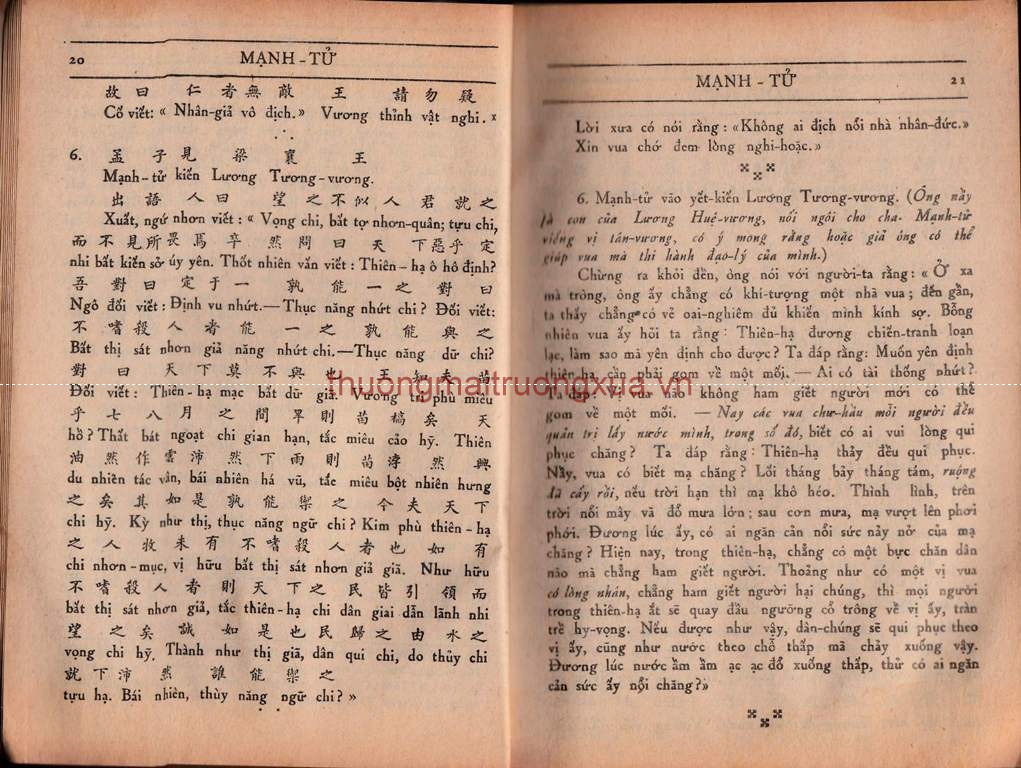 20 MẠNH-TỬ
故曰 仁者無敵 王 請勿疑
Cố viết: « Nhân-giả vô địch.» Vương thỉnh vật nghi. »
6. 孟子見 梁襄 王
Mạnh-tử kiến Lương Tương-vương.
出語 人曰 望之不似人君就之
Xuất, ngứ nhơn viết : « Vọng chi, bất tợ nhơn-quân; tựu chi,
而不見所畏焉卒 然問曰天 下惡乎定
nhi bất kiến sở úy yên. Thốt nhiên vấn viết : Thiên-hạ ô hô định?
吾對曰 定于一 孰能一之對 曰
Ngô đối viết: Định vu nhứt.— Thục năng nhứt chi ? Đối viết:
不嗜殺人者能 一之 孰能與之
Bất thị sát nhơn giả năng nhứt chi.—Thục năng dữ chi?
對曰 天下莫不與也 王知夫苗
Đối viết : Thiên-hạ mạc bất dữ giã. Vương tri phù miêu
乎七八月之間旱則苗槁矣 天
hồ ? Thất bát ngoạt chi gian hạn, tắc miêu cảo hỹ. Thiên
油然作雲沛然下雨則苗浡然興
du nhiên tác vân, bái nhiên há vũ, tắc miêu bột nhiên hưng
之矣其如是孰能禦之 今夫天下
chi hỹ. Kỳ như thị, thục năng ngữ chi ? Kim phù thiên-hạ
之人牧未有不嗜殺人者也如 有
chi nhơn-mục, vị hữu bất thị sát nhơn giả giã. Như hữu
不嗜殺人者則天下之民皆引領而
bất thị sát nhơn giả, tắc thiên-hạ chi dân giai dẫn lãnh nhi
望之矣誠如是也民歸之由水之
vọng chi hỹ. Thành như thị giã, dân qui chi, do thủy chi
就下沛然 誰能禦之
tựu hạ. Bái nhiên, thùy năng ngữ chi ? »
MẠNH - TỬ 21
Lời xưa có nói rằng : «Không ai địch nổi nhà nhân-đức.»
Xin vua chớ đem lòng nghi-hoặc.»
6. Mạnh-tử vào yết-kiến Lương Tương-vương. (Ông nầy
là con của Lương Huệ-vương, nối ngôi cho cha. Mạnh-tử
viếng vị tân-vương, có ý mong rằng hoặc giả ông có thể
giúp vua mà thi hành đạo-lý của mình.)
Chừng ra khỏi đền, ông nói với người-ta rằng : « Ở xa
mà trông, ông ấy chẳng có khí-tượng một nhà vua ; đến gần,
ta thấy chẳng có vẻ oai-nghiêm đủ khiến mình kính sợ. Bỗng
nhiên vua ấy hỏi ta rằng : Thiên-hạ đương chiến-tranh loạn
lạc, làm sao mà yên định cho được ? Ta đáp rằng: Muốn yên định
thiên-hạ, cần phải gom về một mối. — Ai có tài thống nhứt ?
Ta đáp : Vị vua nào không ham giết người mới có thể
gom về một mối. — Nay các vua chư-hầu mỗi người đều
quản trị lấy nước mình, trong số đó, biết có ai vui lòng qui
phục chăng ? Ta đáp rằng : Thiên-hạ thảy đều qui phục.
Nầy, vua có biết mạ chăng ? Lối tháng bảy tháng tám, ruộng
đã cấy rồi, nếu trời hạn thì mạ khô héo. Thình lình, trên
trời nổi mây và đổ mưa lớn ; sau cơn mưa, mạ vượt lên phơi
phới. Đương lúc ấy, có ai ngăn cản nổi sức nảy nở của mạ
chăng ? Hiện nay, trong thiên-hạ, chẳng có một bực chăn dân
nào mà chẳng ham giết người. Thoảng như có một vị vua
có lòng nhân, chẳng ham giết người hại chúng, thì mọi người
trong thiên-hạ ắt sẽ quay đầu ngưỡng cổ trông về vị ấy, tràn
trề hy-vọng. Nếu được như vậy, dân-chúng sẽ qui phục theo
vị ấy, cũng như nước theo chỗ thấp mà chảy xuống vậy.
Đương lúc nước ầm ầm ạc ạc đổ xuống thấp, thử có ai ngăn
cản sức ấy nổi chăng?»
thuongmaitruongxua.vn